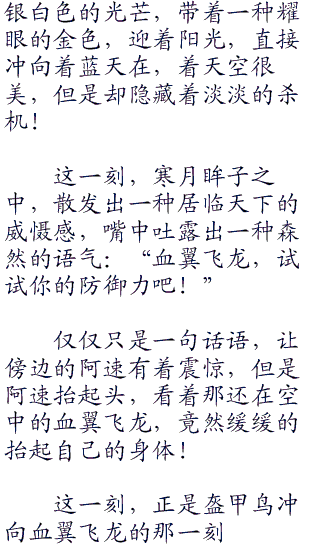 银白色的光芒，带着一种耀
眼的金色，迎着阳光，直接
冲向着蓝天在，着天空很
美，但是却隐藏着淡淡的杀
机！
这一刻，寒月眸子之
中，散发出一种居临天下的
威慑感，嘴中吐露出一种森
然的语气：“血翼飞龙，试
试你的防御力吧！”
仅仅只是一句话语，让
傍边的阿速有着震惊，但是
阿速抬起头，看着那还在空
中的血翼飞龙，竟然缓缓的
抬起自己的身体！
这一刻，正是盔甲鸟冲
向血翼飞龙的那一刻